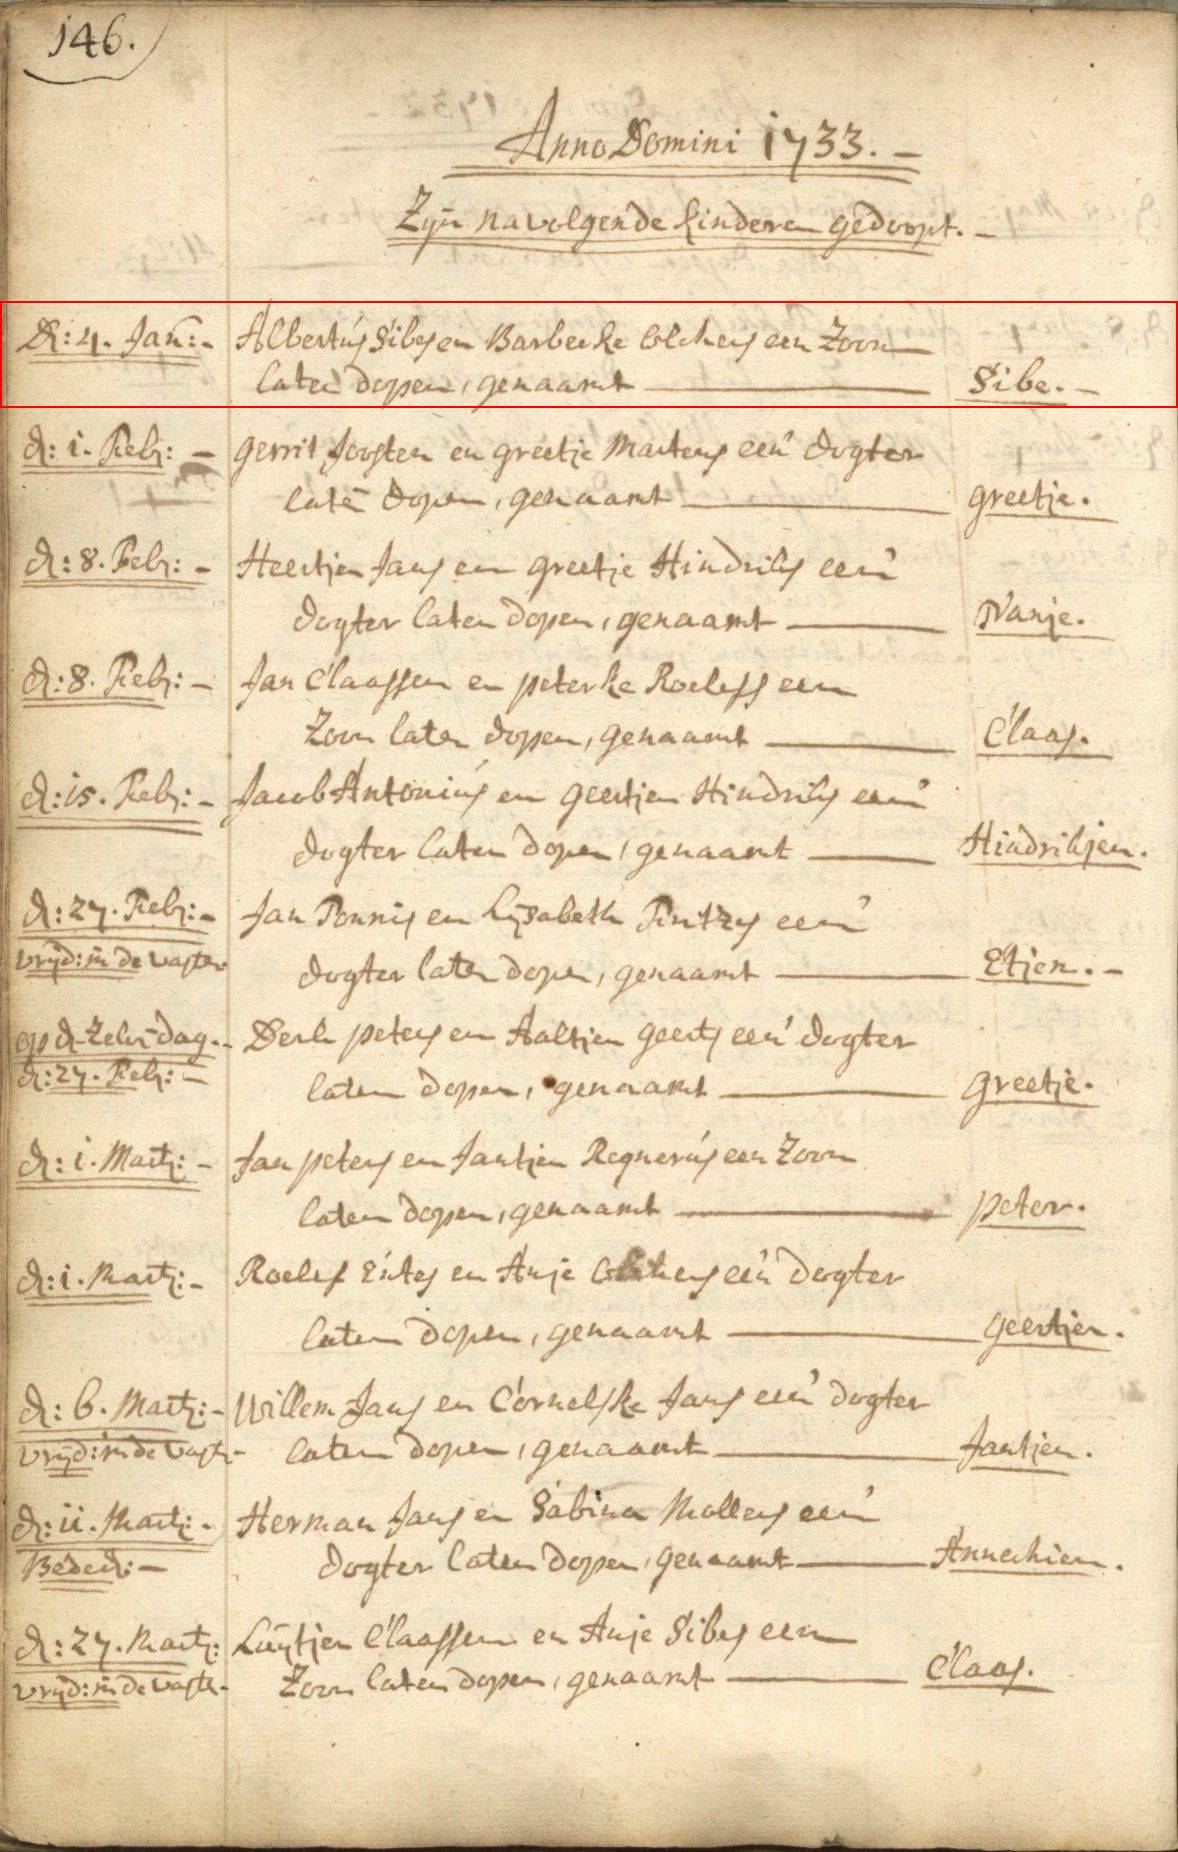 146.
Anno Domini 1733. -
Zijn navolgende kinderen gedoopt. -
D: 4. Jan: - Albertus Sibes en Barbecke Eckens een Zoon
laten dopen, genaamt Sibe. -
d: 1. Feb: - Gerrit Joosten en Greetje Martens een dogter
laten dopen, genaamt Greetje.
d: 8. Feb: - Heertjen Jans en Greetje Hindriks een
dogter laten dopen, genaamt
d: 8. Feb: - Jan Claassen en Peterke Roelefs een
Zoon laten dopen, genaamt Claas.
d: 15. Feb: - Jacob Antonius en Geertjen Hindriks een
dogter laten dopen, genaamt Hindrikjen.
d: 27. Feb: - Jan Tonnis en Lysabeth een
vrijd: in de vasten
dogter laten dopen, genaamt Etjen. -
op d. Zelv dag. - Derk Peters en Aaltjen Geerts een dogter
d: 27. Feb: - laten dopen, genaamt Greetje.
d: 1. Mart: - Jan Peters en Jantjen Regnerus een Zoon
laten dopen, genaamt Peter.
d: 1. Mart: - Roelef Eites en Anje een dogter
laten dopen, genaamt Geertjen.
d: 6. Mart: - Willem Jans en Cornelske Jans een dogter
vrijd: in de vast: - laten dopen, genaamt Jantjen.
d: 11. Mart: - Herman Jans en Sabina Mollens een
Beded: - dogter laten dopen, genaamt Annechien.
d: 27. Mart: Luytjen Claassen en Anje Sibes een
vrijd: in de vaste - Zoon laten dopen, genaamt Claas.